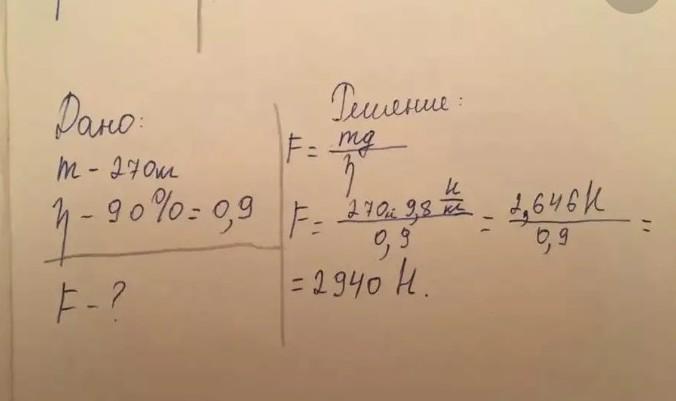 Дано:
m - 270м
η - 90% = 0,9
F - ?
Решение:
F = mg / η
F = 270м 9,8 Н/кг / 0,9 = 2,646Н / 0,9 =
= 2940 Н.